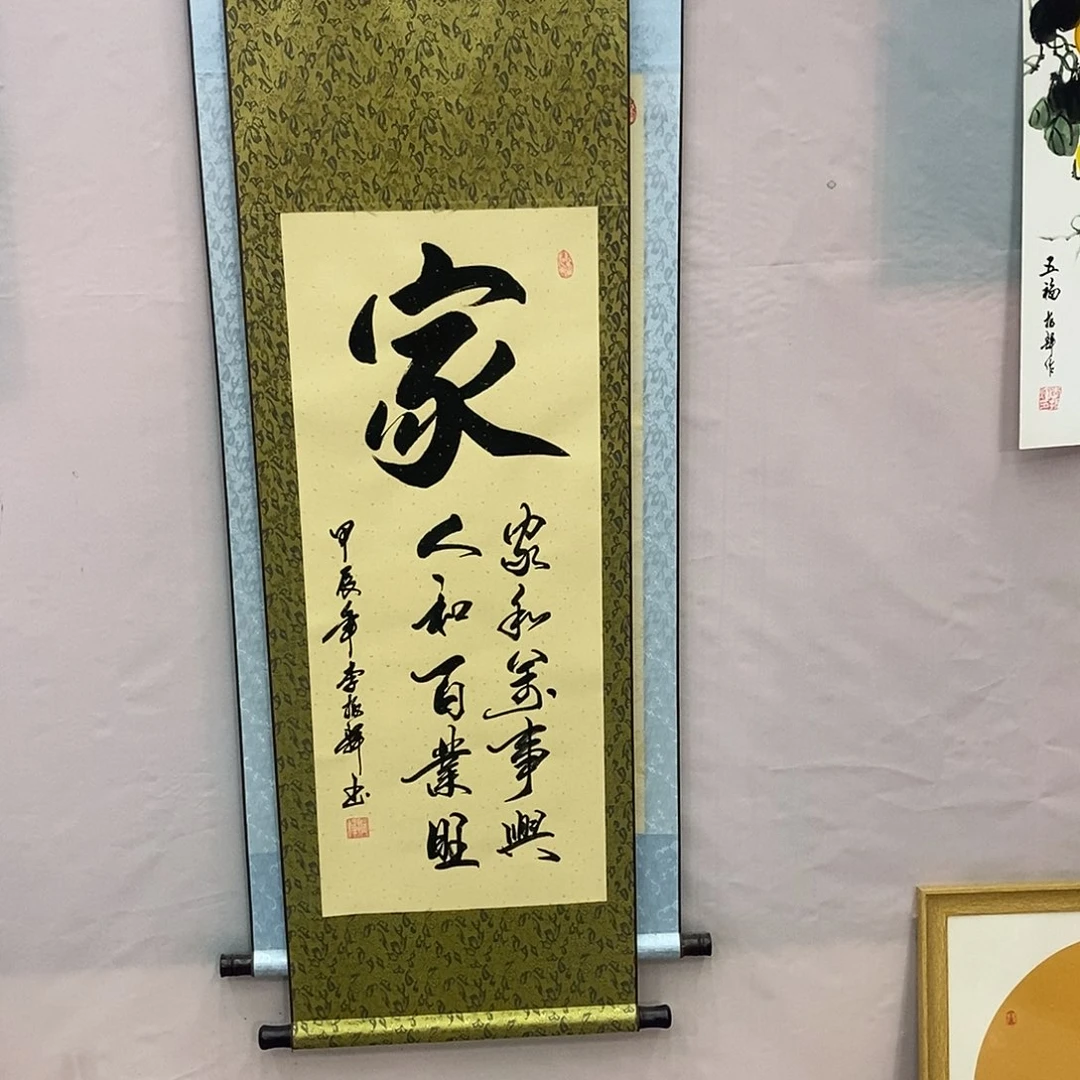 家
家和萬事興
人和百業旺
甲辰年李振輝书
五福 振輝作